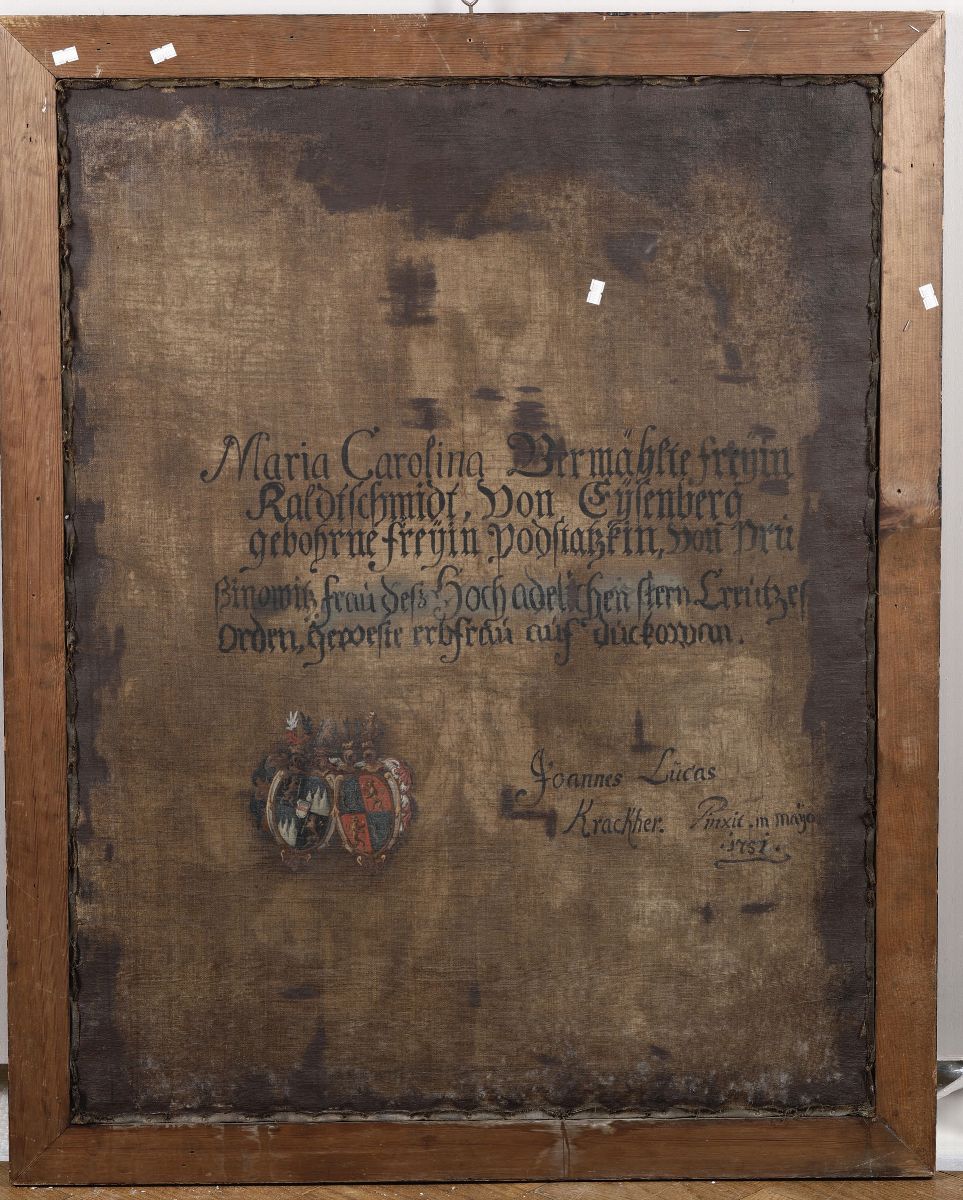 Maria Carolina Vermählte freÿin
Kaldtschmidt, Von Eÿsenberg
gebohrne freÿin Podstatzkin, von Prü
ßinowitz frau deß Hoch adelichen stern Creützes
Orden, geweste erbfraü aüf Lückowan.
Joannes Lucas
Krackher. Pinxit. in mäyo
.1751.